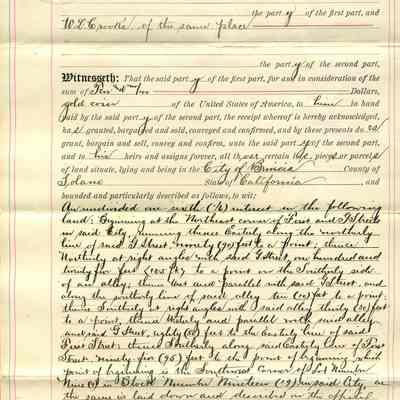 the party of the first part, and
W. L. Crooks of the same place
the party of the second part,
Witnesseth: That the said party of the first part, for and in consideration of the
sum of Ten Dollars,
gold coin of the United States of America, to him in hand
paid by the said party of the second part, the receipt whereof is hereby acknowledged,
has granted, bargained and sold, conveyed and confirmed, and by these presents do es
grant, bargain and sell, convey and confirm, unto the said party of the second part,
and to his heirs and assigns forever, all that certain piece or parcel
of land situate, lying and being in the City of Benicia County of
Solano State of California and
bounded and particularly described as follows, to wit:
An undivided one sixth (1/6) interest in the following
land: Beginning at the Northeast corner of First and G Streets
in said City, running thence Easterly along the northerly
line of said G Street ninety (90) feet to a point; thence
Northerly at right angles with said G Street, one hundred and
twenty five feet (125 ft) to a point on the Southerly side
of an alley; thence West and parallel with said G Street and
along the southerly line of said alley ten (10) feet to a point;
thence Southerly at right angles with said alley thirty (30) feet
to a point, thence Westerly and parallel with said alley
and said G Street, eighty (80) feet to the Easterly line of said
First Street; thence Southerly along said Easterly line of First
Street ninety five (95) feet to the point of beginning which
point of beginning is the Southwest corner of Lot Number
Nine (9) in Block Number Nineteen (19) in said City, as
the same is laid down and described on the official